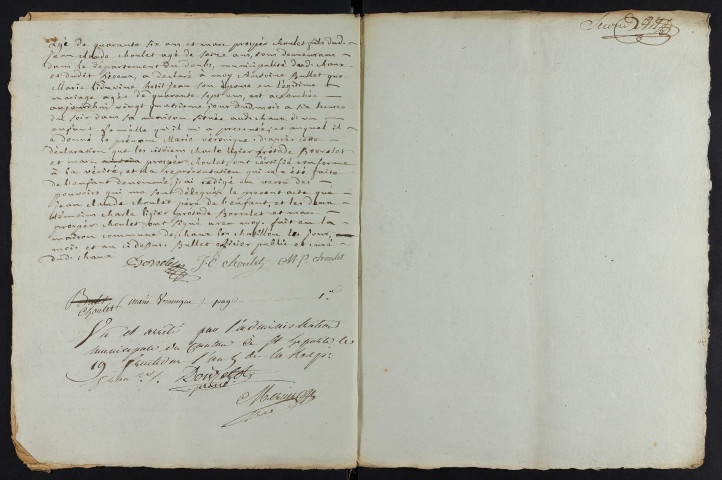 agé de quarante six ans et marc prosper choulet fils dud.
jean claude choulet agé de seize ans, tous demeurans
dans le département du doubs, municipalité dud. chaux
et dudit a declaré à moy Antoine Bullet que
Marie petit jean son épouse en légitime
mariage agée de quarante sept ans, est accouchée
aujourdhui vingt quatrieme jour dud. mois a six heures
du soir dans sa maison située aud. chaux d'un
enfant femelle qu'il m'a presenté, et auquel il
a donné le prénom Marie véronique : d'après cette
déclaration que les citoiens charle ligier protade Borrelot
et marc prosper choulet, ont certifié conforme
à la vérité, et la représentation qui m'a été faite
de l'enfant denommé, j'ai rédigé en vertu des
pouvoirs qui me sont délégués le present acte que
jean claude choulet père de l'enfant, et les deux
témoins charle ligier protade Borrelot et marc
prosper choulet, ont signé avec moy. fait en la
maison commune de chaux les chatillon les jour,
mois et an ci dessus. Bullet officier public
dud. chaux
Borrelot J. C. choulet M. P. choulet
choulet (marie Veronique) page 1.re
Vu et arrêté par l'administration
municipale du canton de st hypolite le
19 l'an 5 de la Rep.